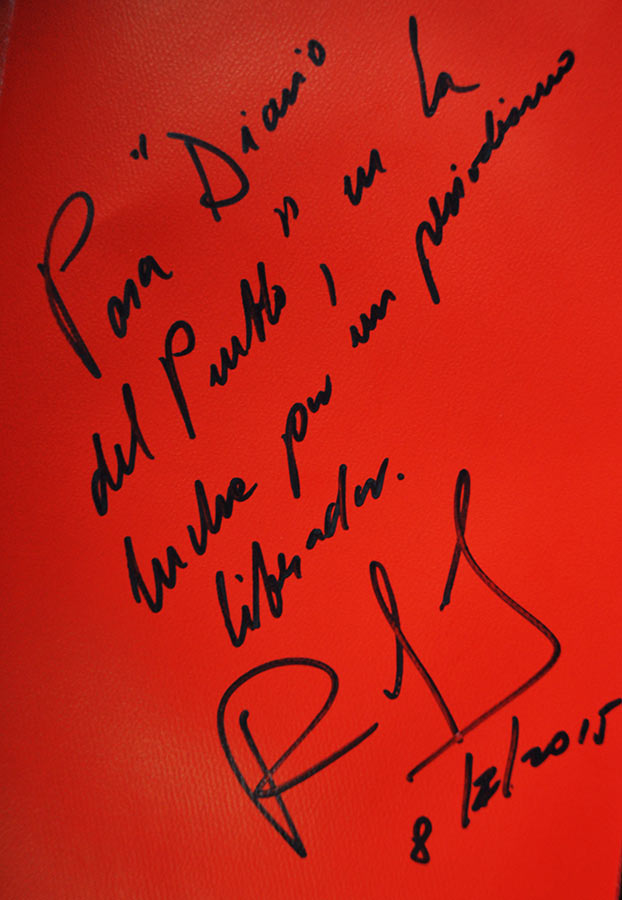 Para "Diario
del Pueblo", en la
lucha por un periodismo
liberador.
8/2/2015